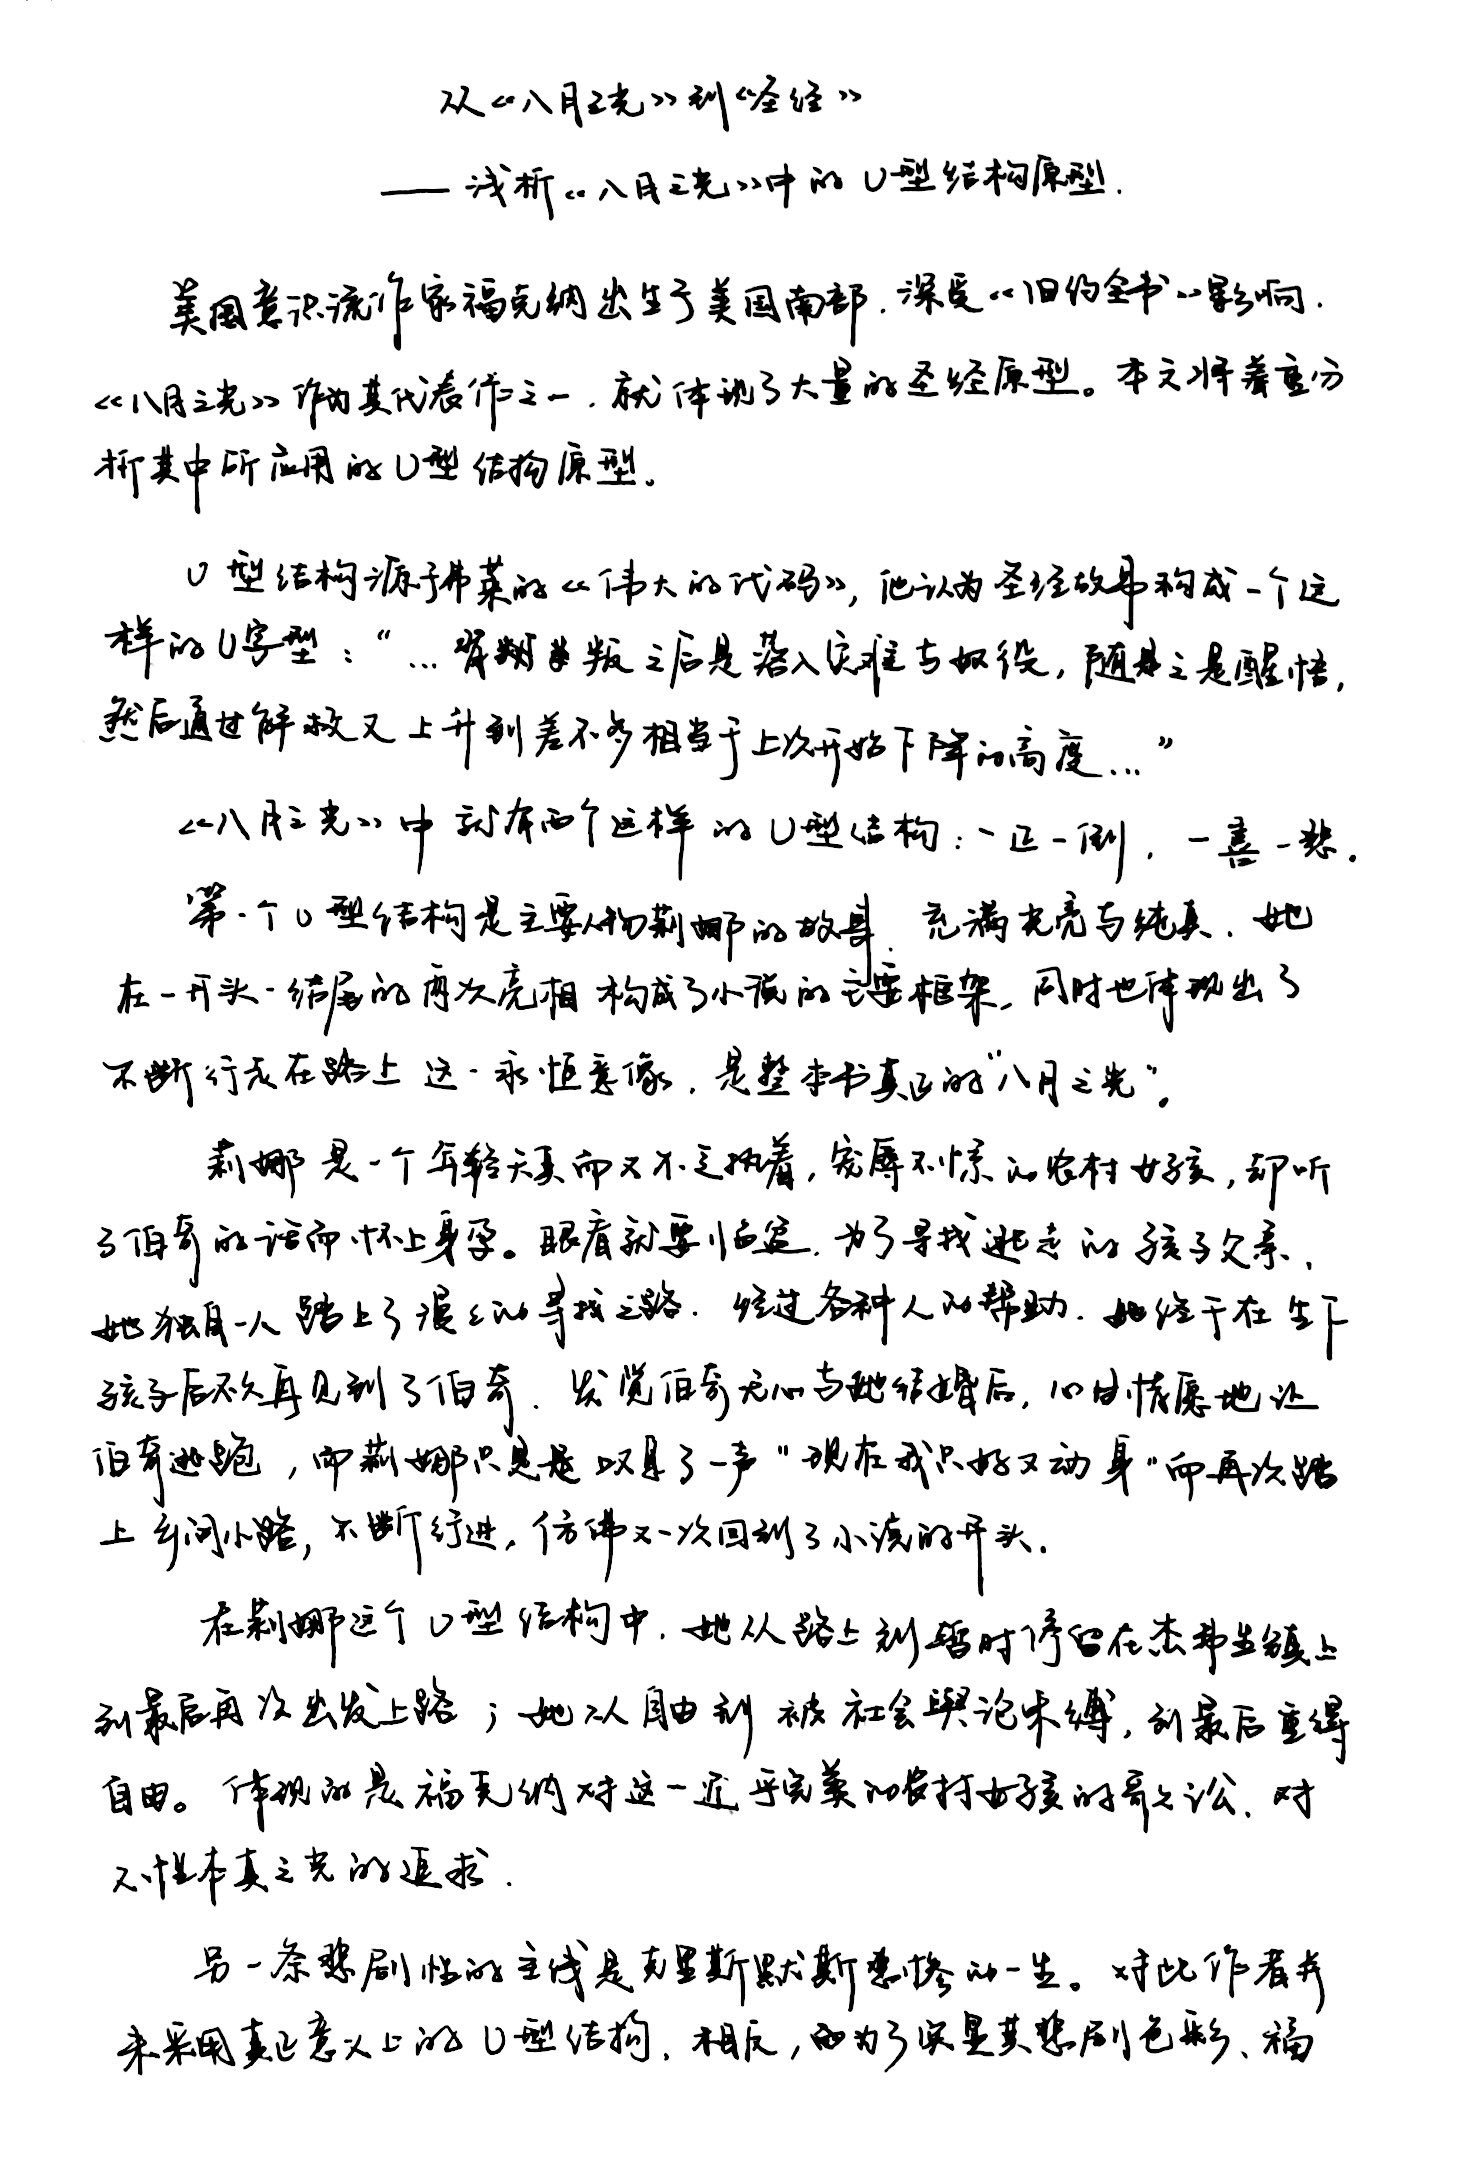 从《八月之光》到《圣经》
——浅析《八月之光》中的U型结构原型.
美国意识流作家福克纳出生于美国南部,深受《旧约全书》影响.
《八月之光》作为其代表作之一,就体现了大量的圣经原型。本文将着重分
析其中所应用的U型结构原型。
U型结构源于弗莱的《伟大的代码》,他认为圣经故事构成一个这
样的U字型:“...背叛之后是落入灾难与奴役,随之是醒悟,
然后通过解救又上升到差不多相当于上次开始下降的高度...”
《八月之光》中就有两个这样的U型结构:一正一倒,一喜一悲.
第一个U型结构是主要人物莉娜的故事,充满光亮与纯真.她
在一开头一结尾的两次亮相构成了小说的主要框架,同时也体现出了
不断行走在路上这一永恒意像,是整本书真正的“八月之光”。
莉娜是一个年轻天真而又不乏执着,宠辱不惊的农村女孩,却听
了伯奇的话而怀上身孕。眼看就要临盆,为了寻找逃走的孩子父亲,
她独自一人踏上了漫漫的寻找之路.经过各种人的帮助.她终于在生下
孩子后不久再见到了伯奇.发觉伯奇无心与她结婚后,心甘情愿地让
伯奇逃跑,而莉娜只是叹息了一声“现在我只好又动身”而再次踏
上乡间小路,不断行进,仿佛又一次回到了小说的开头.
在莉娜这个U型结构中,她从路上到暂时停留在杰弗生镇上
到最后再次出发上路;她从自由到被社会舆论束缚,到最后重得
自由。体现的是福克纳对这一近乎完美的农村女孩的歌讼、对
人性本真之光的追求.
另一条悲剧性的主线是克里斯默斯悲惨的一生。对此作者并
未采用真正意义上的U型结构,相反,为了突显其悲剧色彩、福